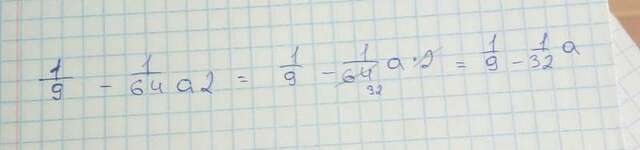 1/9 - 1/64 a2 = 1/9 - 1/64 32 a·2 = 1/9 - 1/32 a